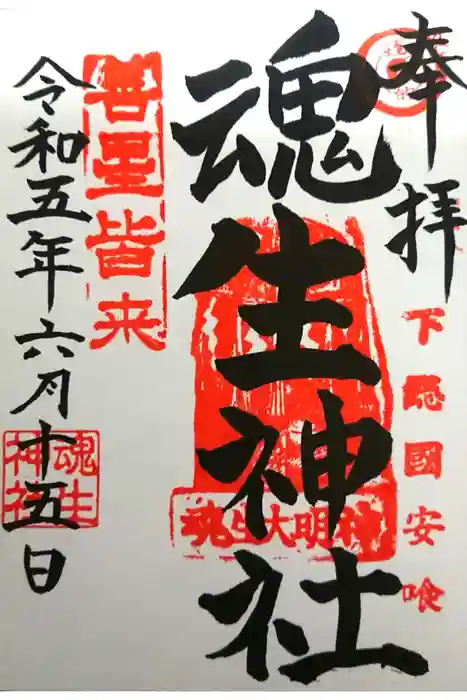 奉拝
下総國安喰
魂生神社
魂生大明神
善星皆来
令和五年六月十五日
魂生
神社